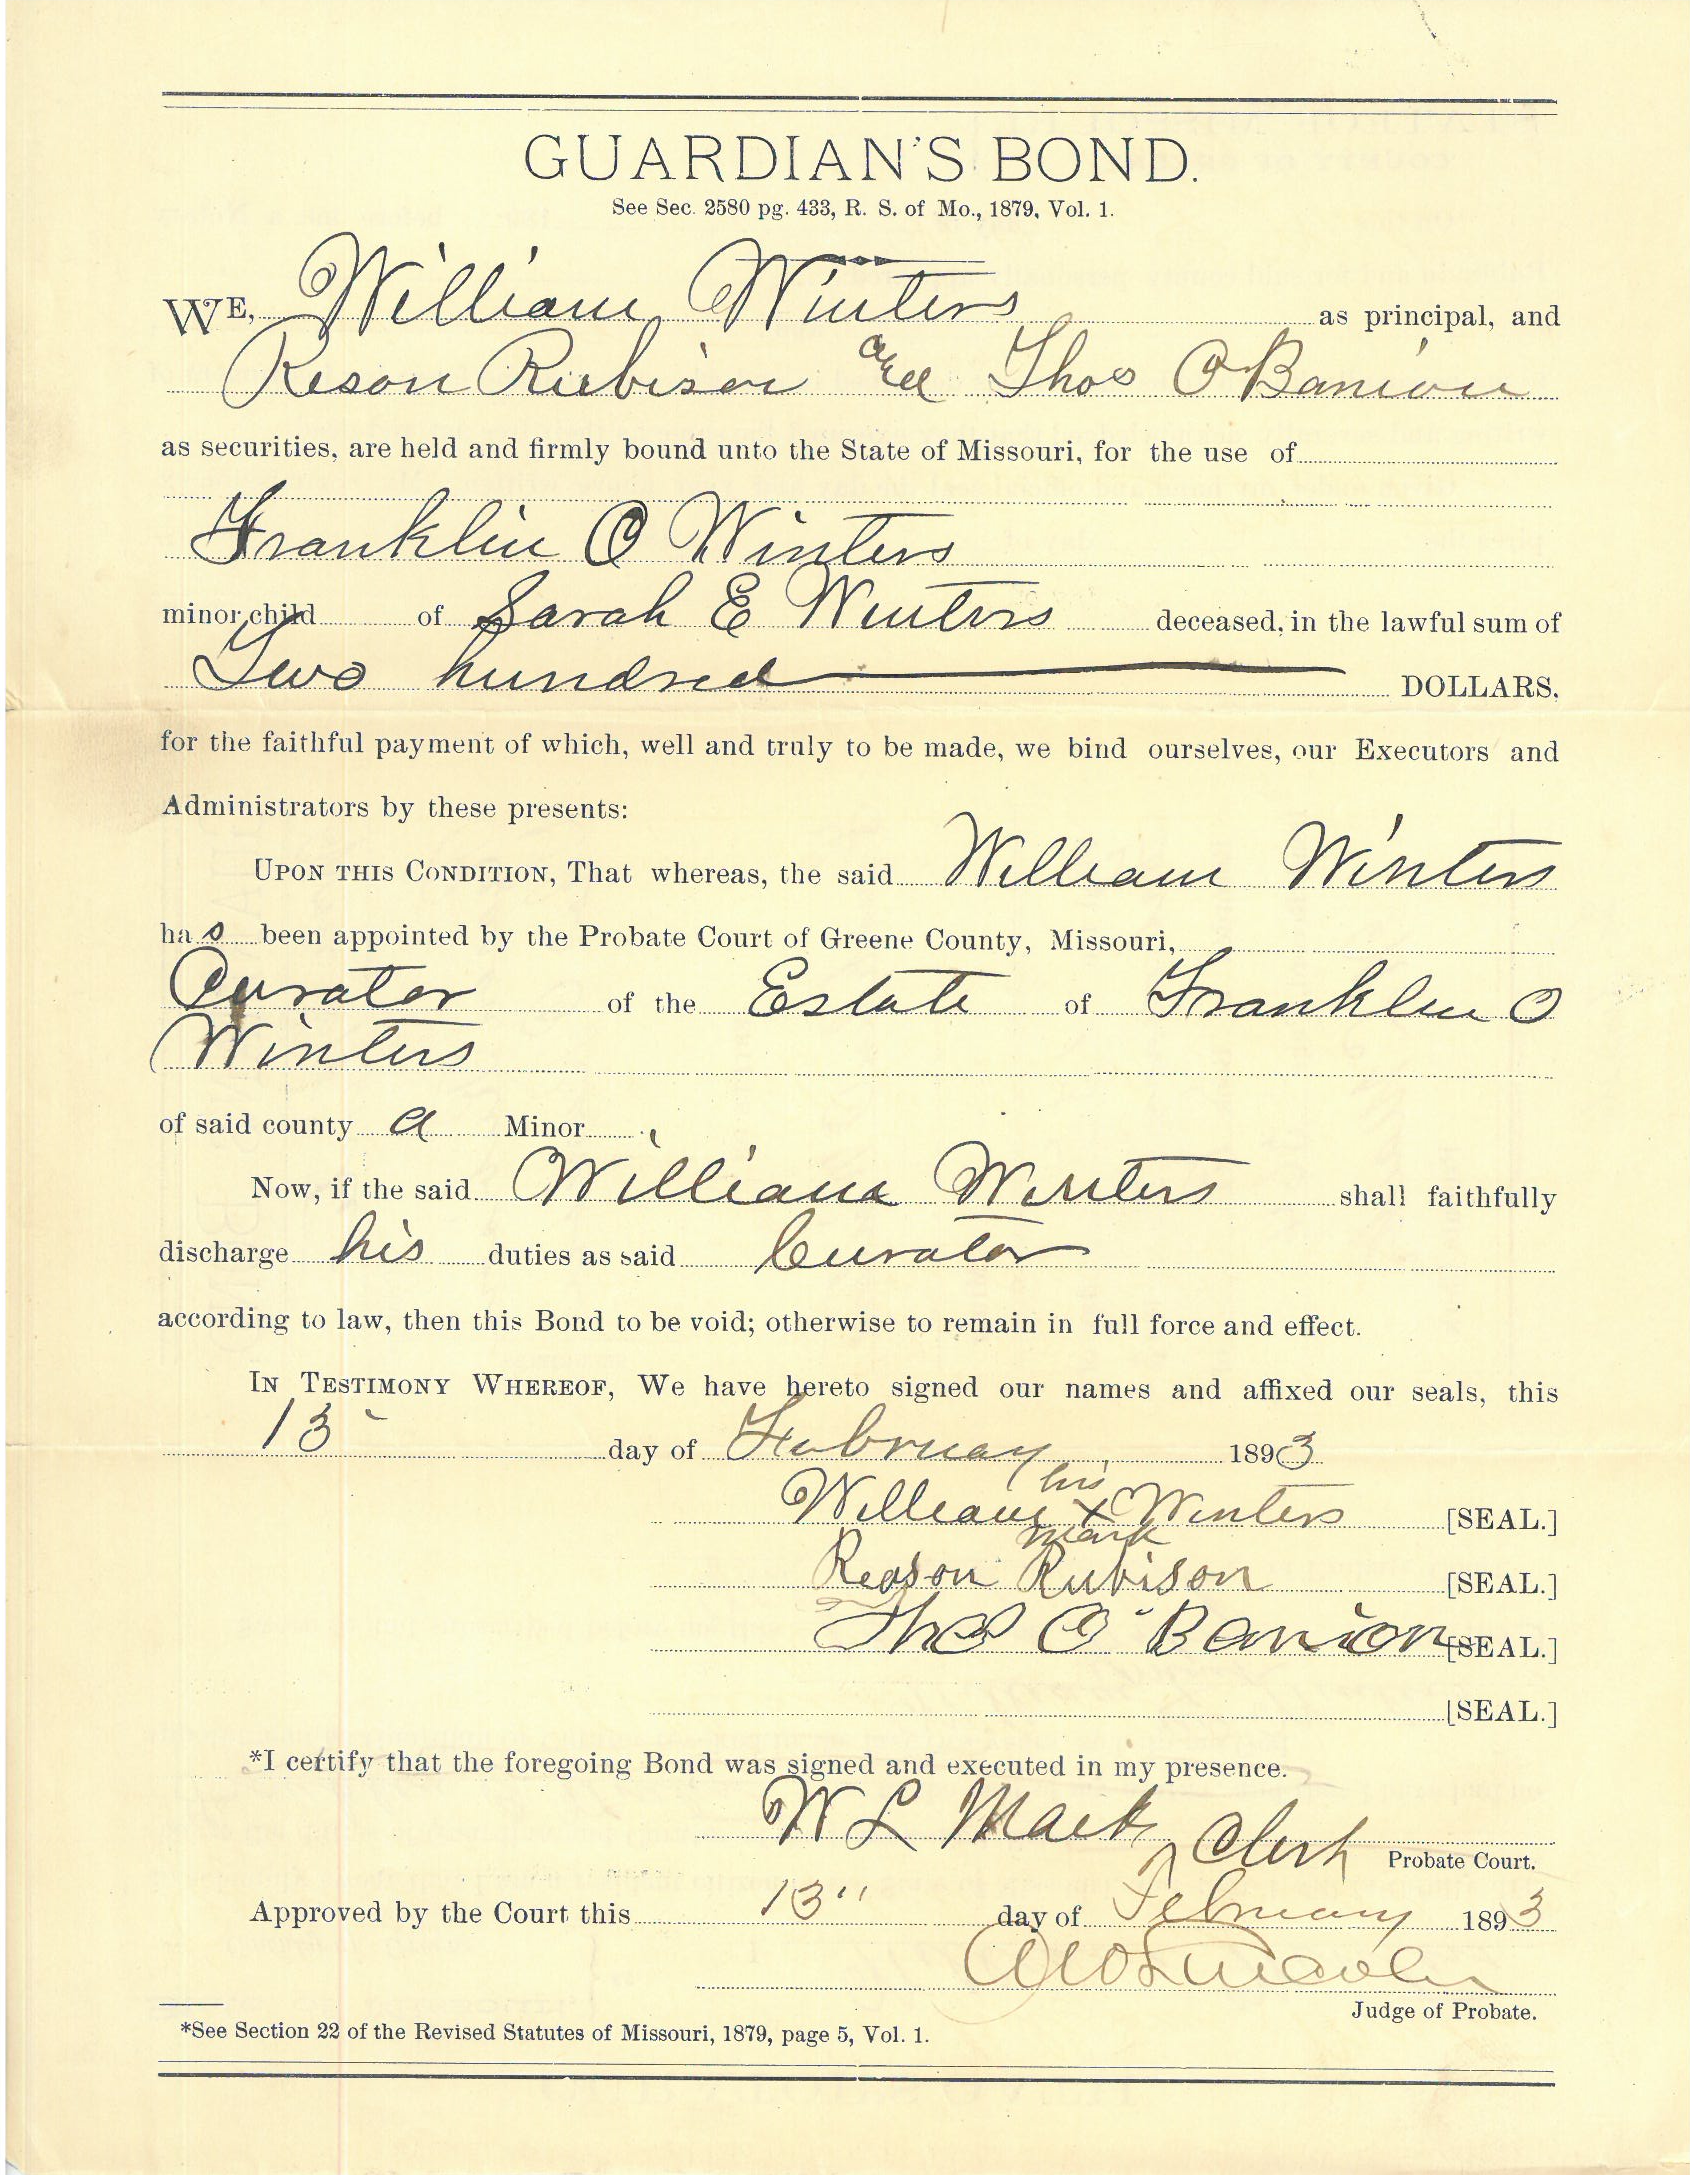 GUARDIAN'S BOND.
See Sec. 2580 pg. 433, R. S. of Mo., 1879, Vol. 1.
WE, William Winters as principal, and
Reson Rubison and Thos O Banion
as securities, are held and firmly bound unto the State of Missouri, for the use of
Franklin O Winters
minor child of Sarah E Winters deceased, in the lawful sum of
Two hundred DOLLARS,
for the faithful payment of which, well and truly to be made, we bind ourselves, our Executors and
Administrators by these presents:
UPON THIS CONDITION, That whereas, the said William Winters
has been appointed by the Probate Court of Greene County, Missouri,
Curator of the Estate of Franklin O
Winters
of said county a Minor
Now, if the said William Winters shall faithfully
discharge his duties as said Curator
according to law, then this Bond to be void; otherwise to remain in full force and effect.
IN TESTIMONY WHEREOF, We have hereto signed our names and affixed our seals, this
13 day of February 1893
his
William X Winters [SEAL.]
mark
Reason Rubison [SEAL.]
Thos O'Banion [SEAL.]
[SEAL.]
*I certify that the foregoing Bond was signed and executed in my presence.
W L Mack, Clerk Probate Court.
Approved by the Court this 13" day of February 1893
Judge of Probate.
*See Section 22 of the Revised Statutes of Missouri, 1879, page 5, Vol. 1.